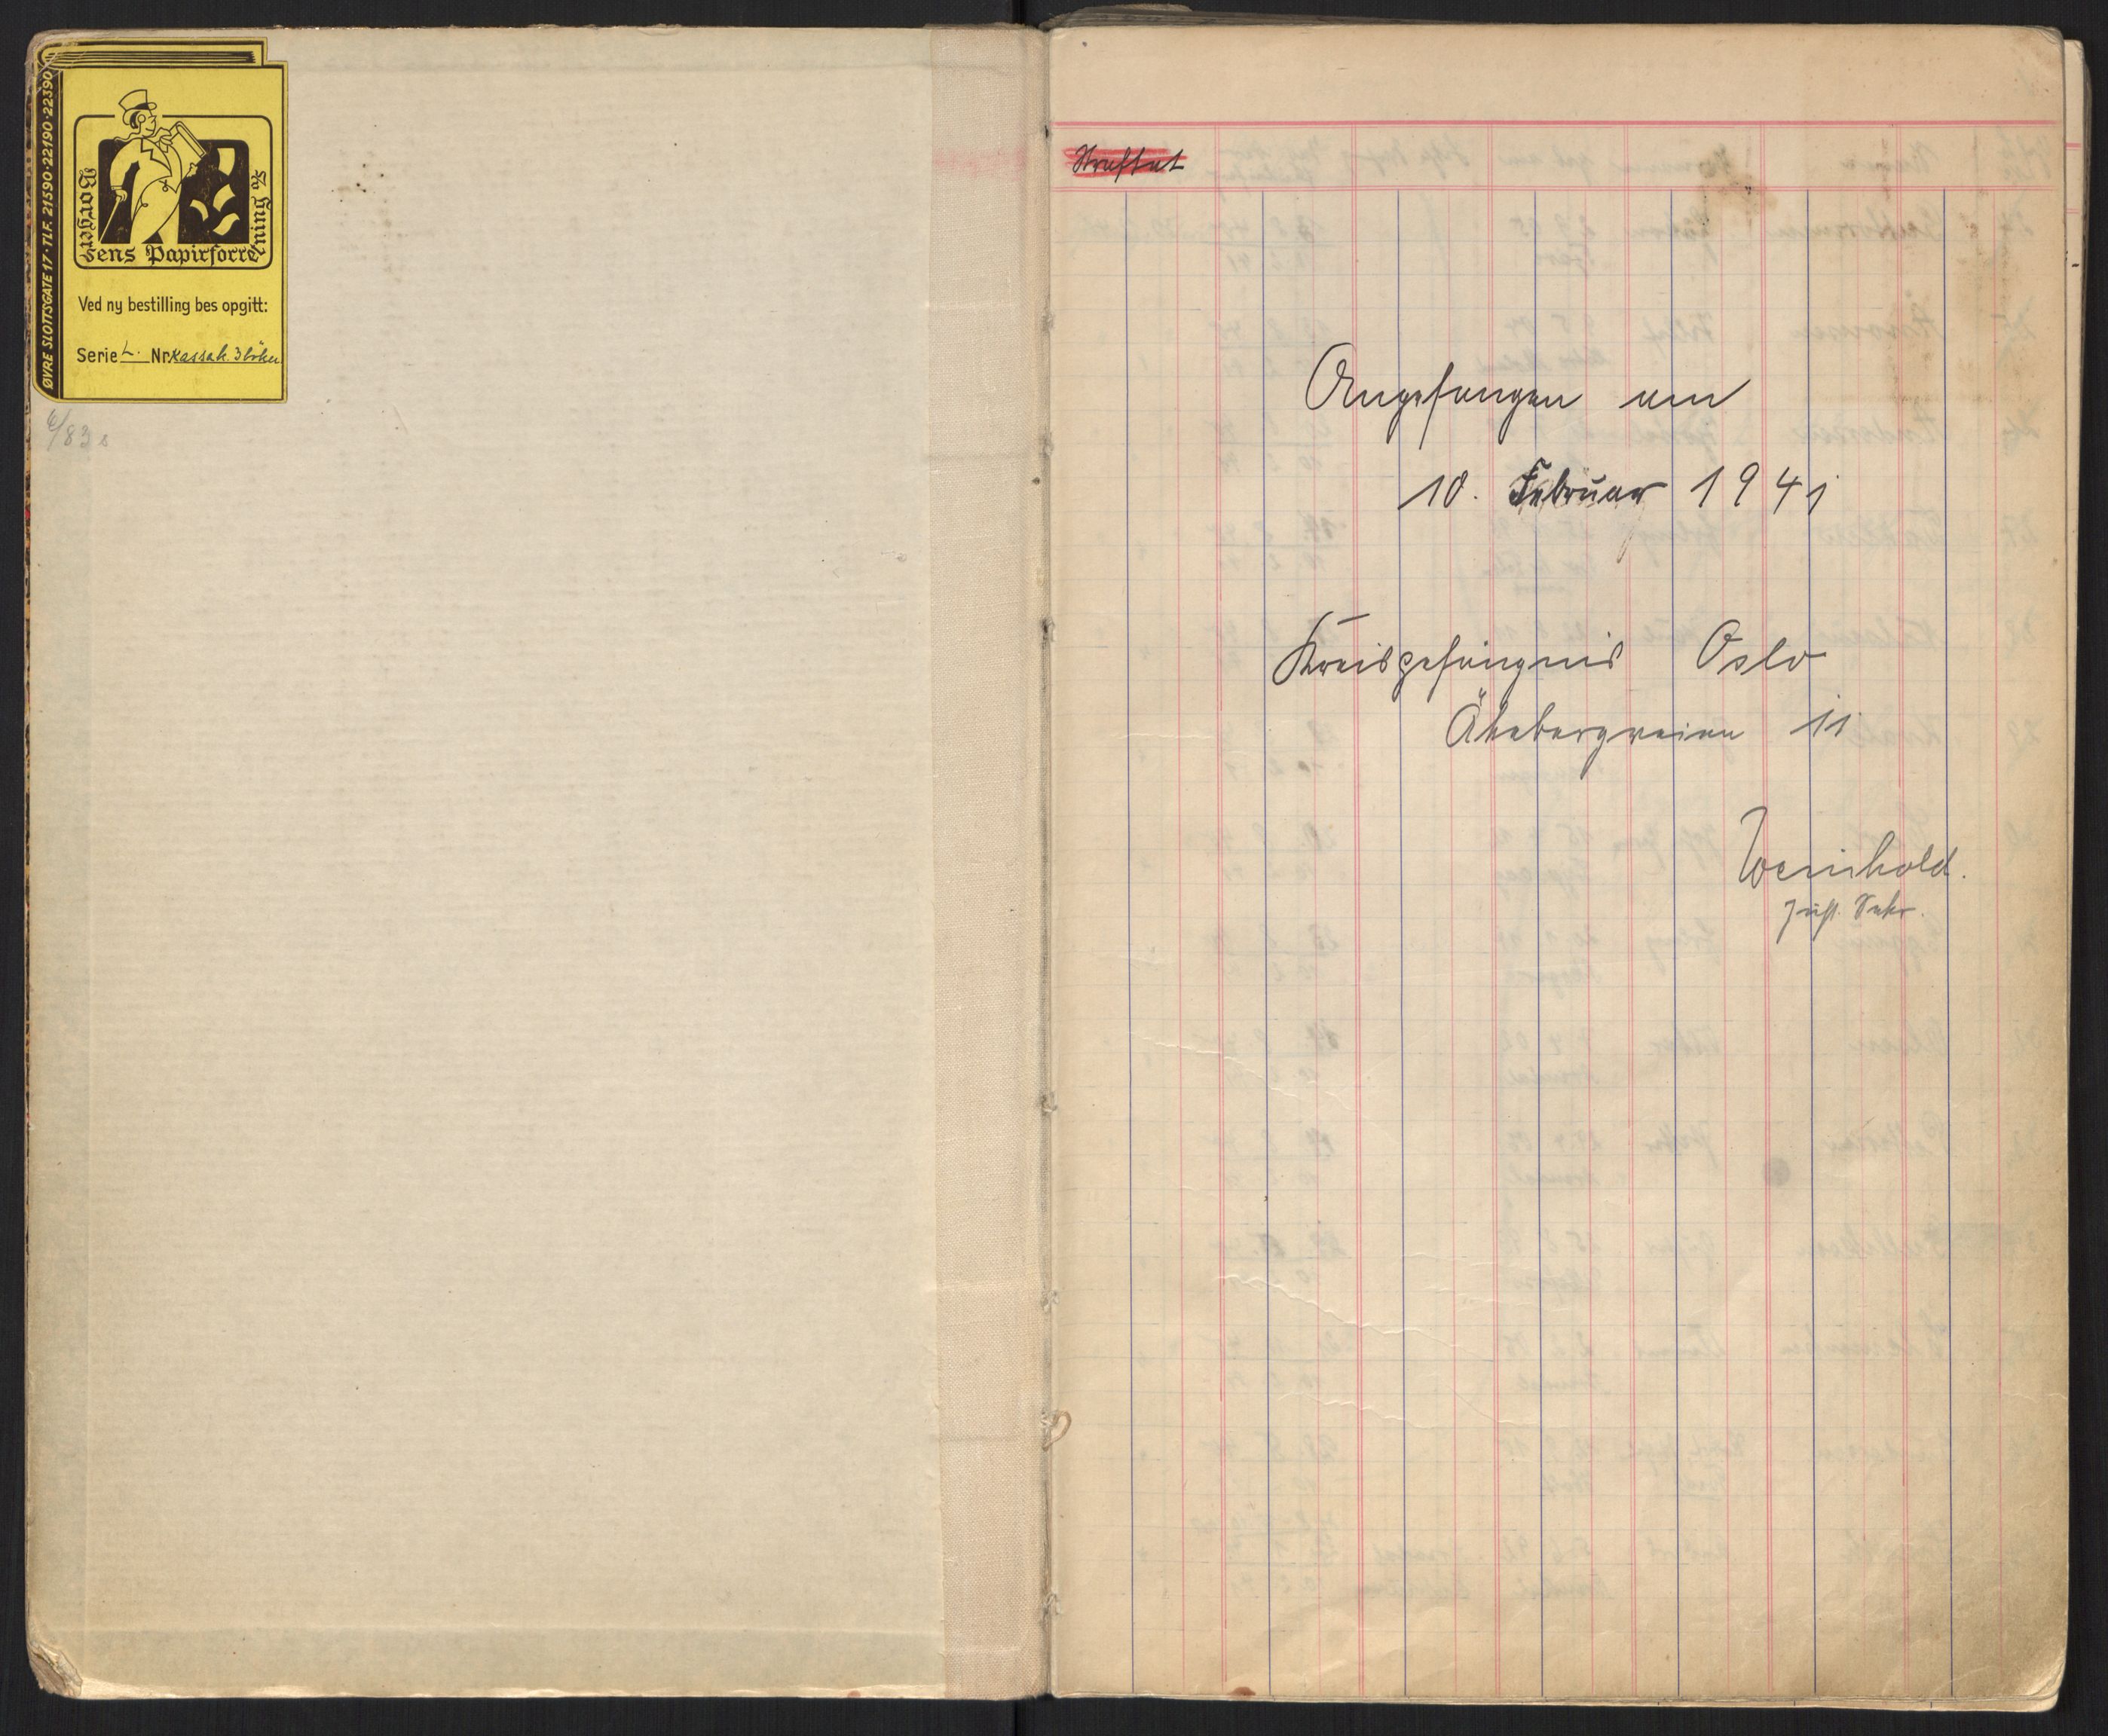 ØVRE SLOTTSGATE 17 · TLF. 21590 · 22190 · 22390
Borgersens Papirforretning A/S
Ved ny bestilling bes opgitt:
Serie L. Nr. Kassab. 3
6/83
Angefangen am
10. Februar 1941
Kreisgefängnis Oslo
Åkebergveien 11
Weinhold.
Just. Sekr.